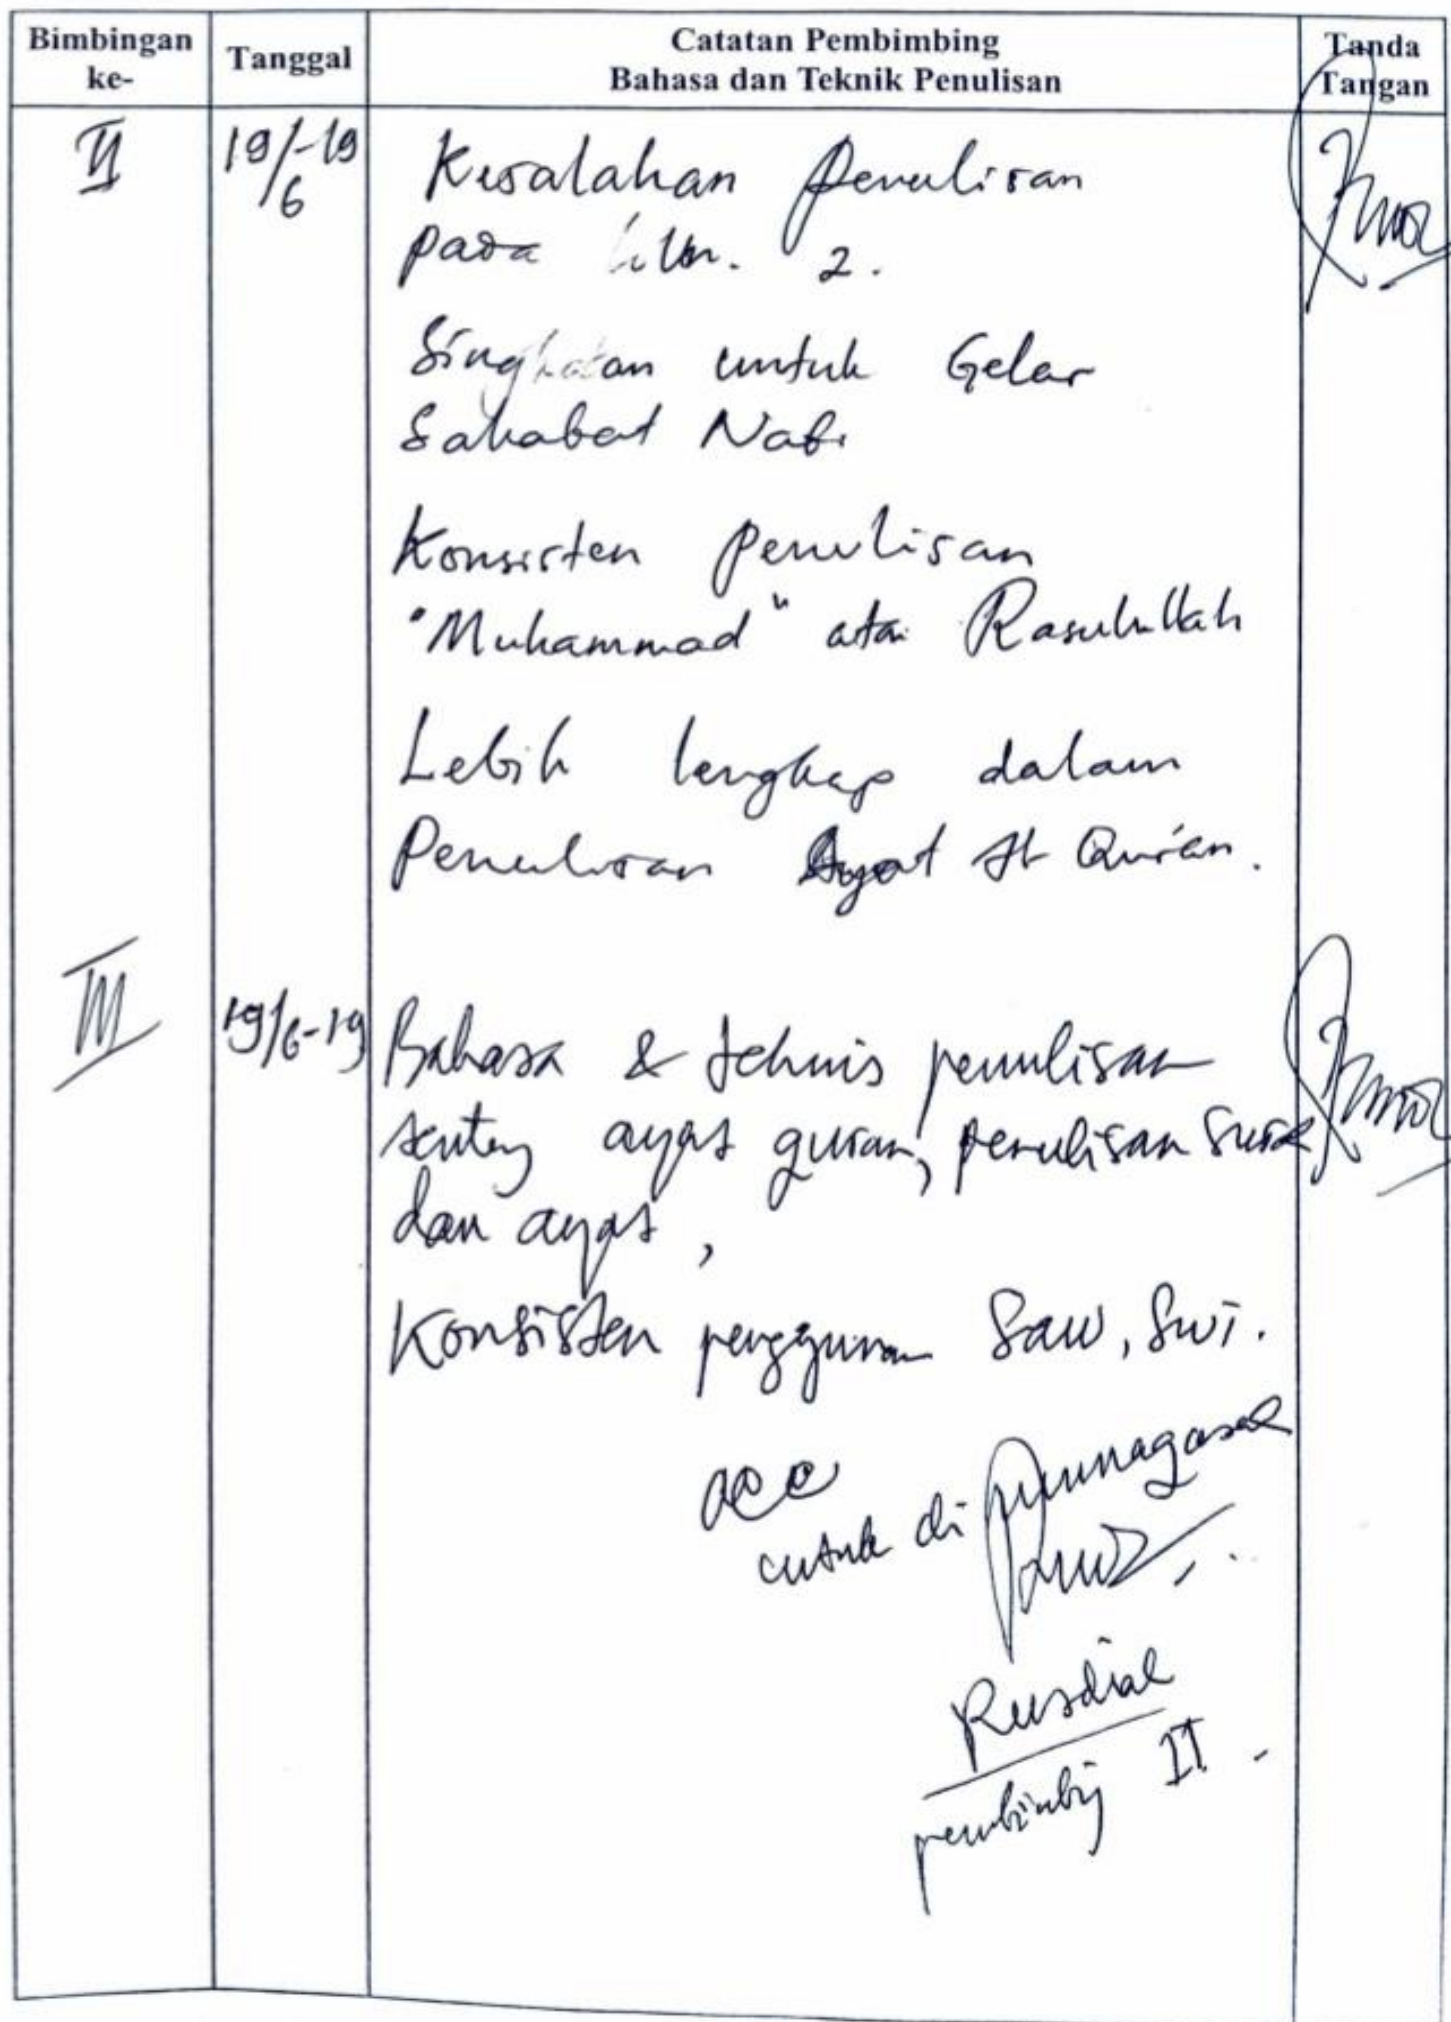 Bimbingan ke-
Tanggal
Catatan Pembimbing
Bahasa dan Teknik Penulisan
Tanda Tangan
II
19/6-19
Kesalahan Penulisan
pada hlm. 2.
Singkatan untuk Gelar
Sahabat Nabi
Konsisten Penulisan
"Muhammad" atau Rasulullah
Lebih lengkap dalam
Penulisan Ayat Al Qur'an.
III
19/6-19
Bahasa & tehnis penulisan
tentang ayat quran, penulisan surat
dan ayat,
Konsisten penggunaan Saw, Swt.
acc
untuk di
Rusdial
pembimbing II